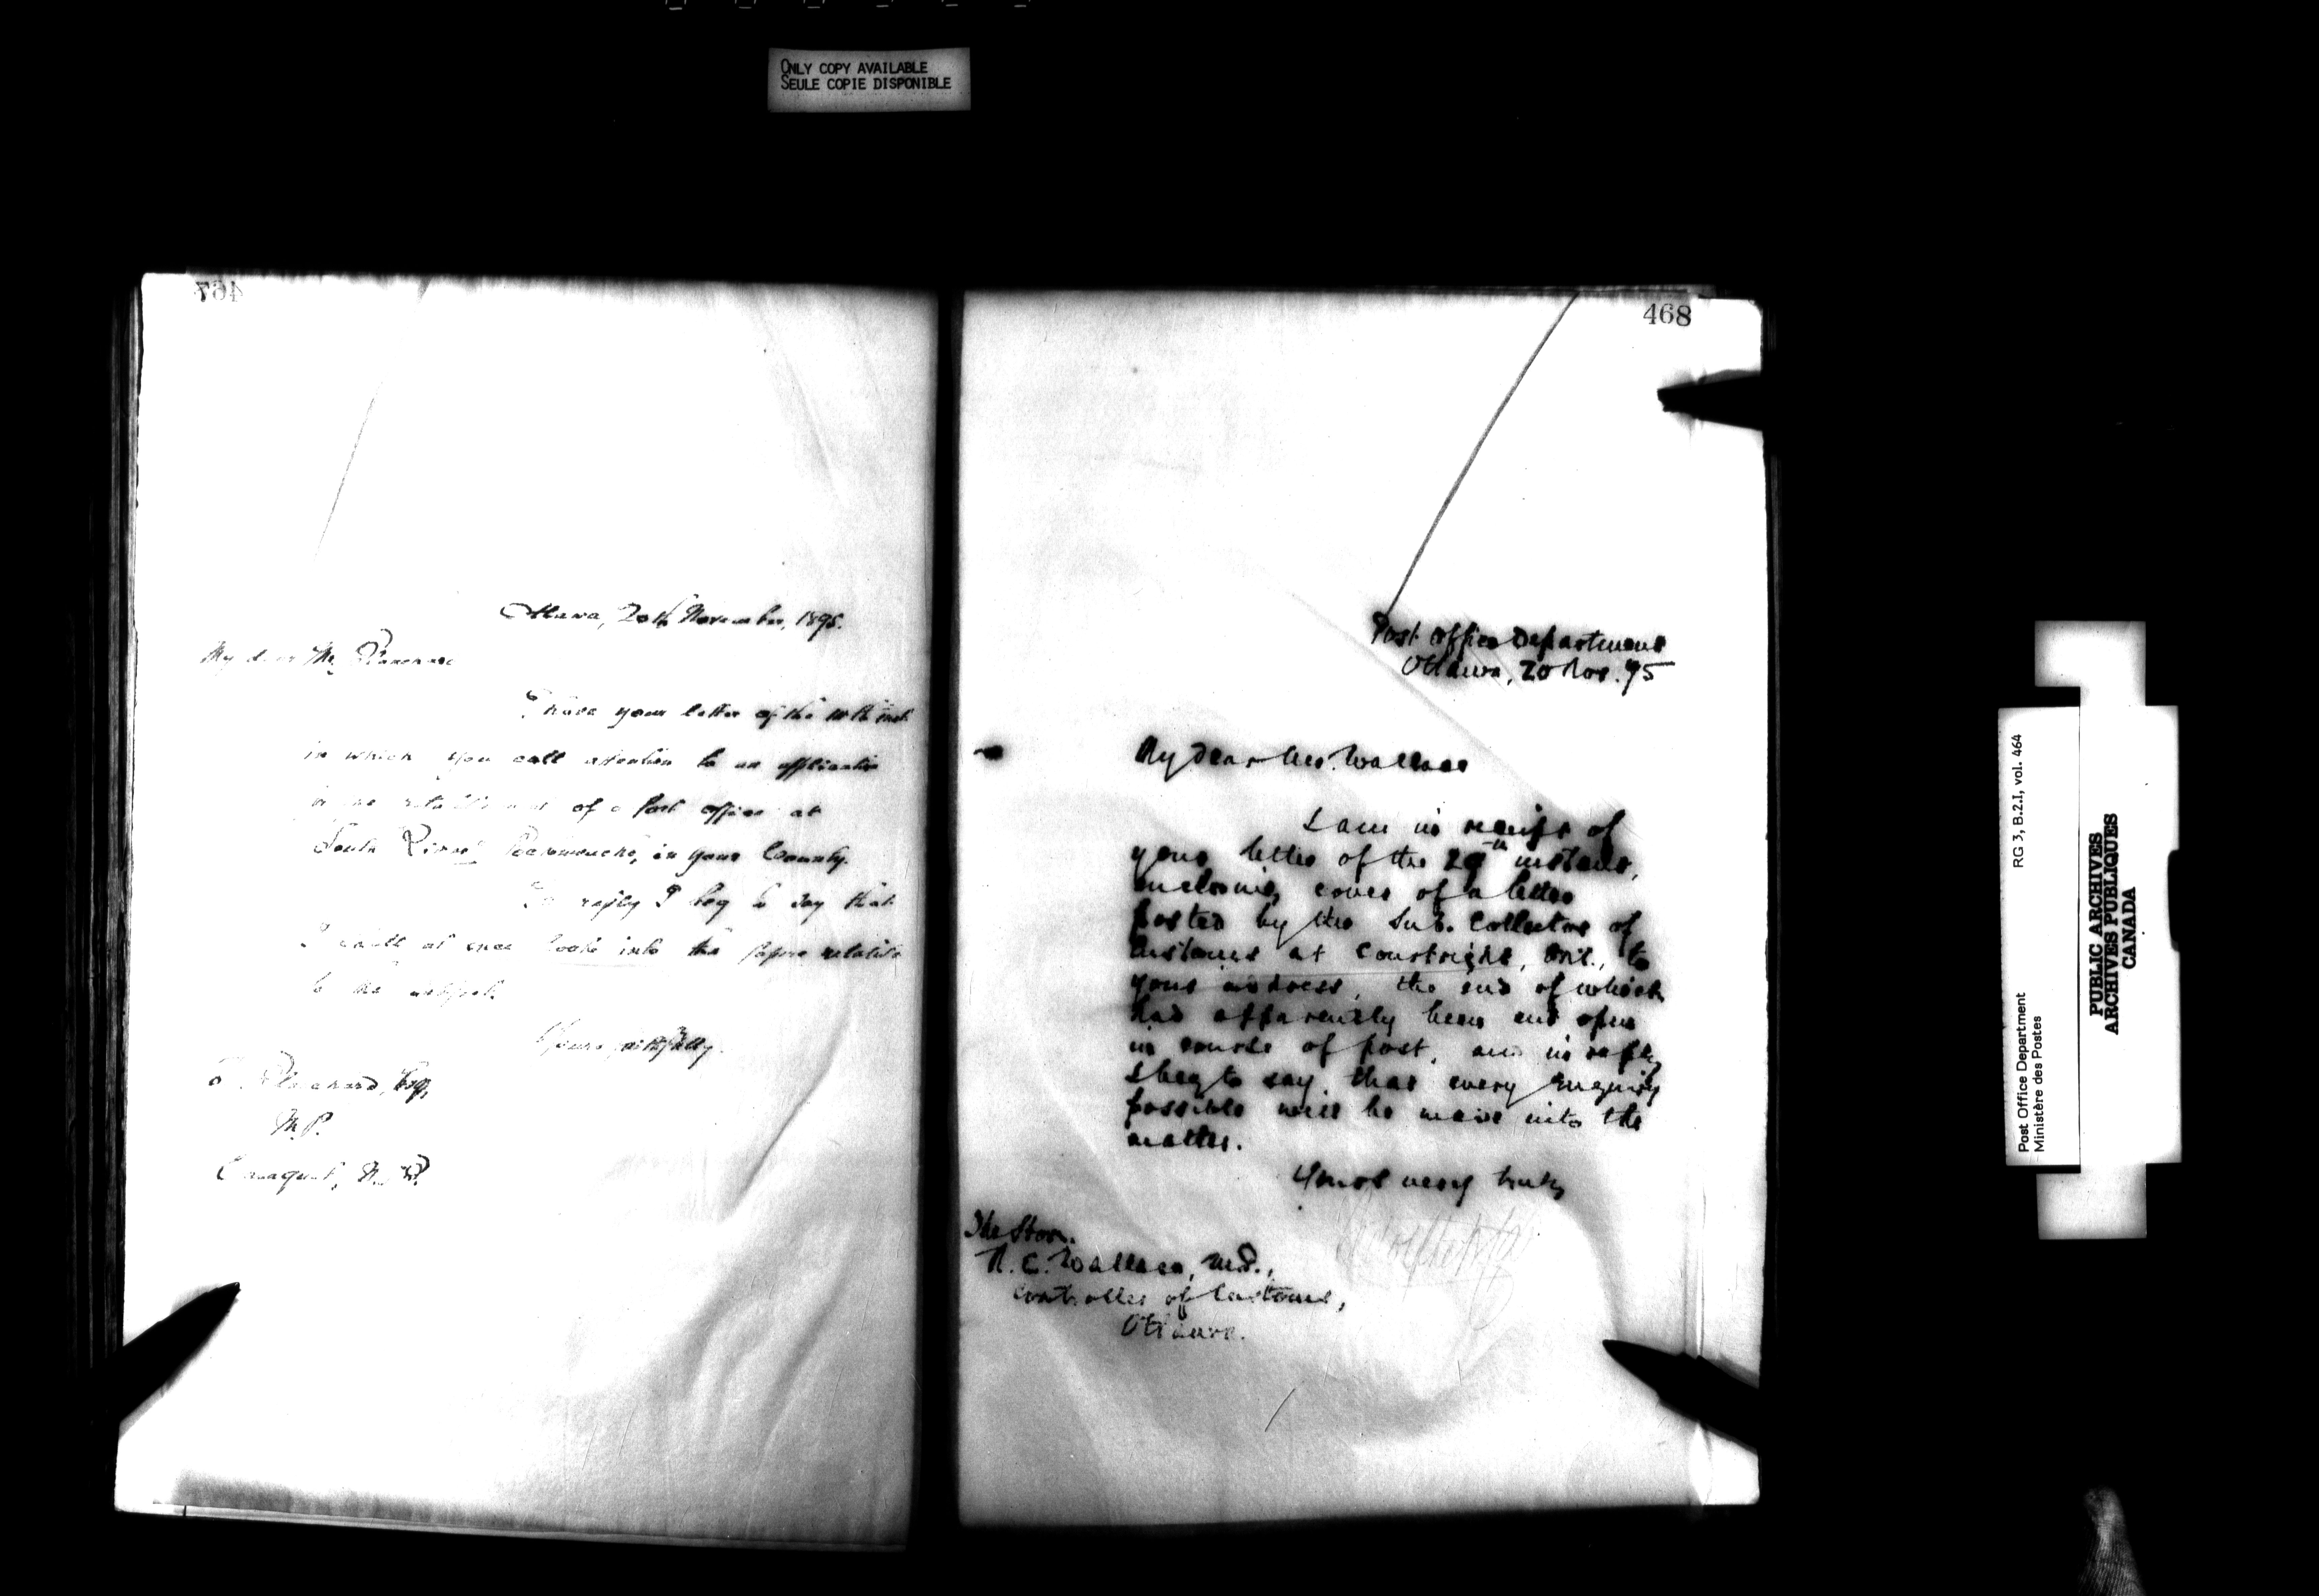 ONLY COPY AVAILABLE
SEULE COPIE DISPONIBLE
467
Ottawa, 20th November, 1895.
My dear Mr.
I have your letter of the inst.
in which you call attention to an application
of a Post office at
South River Pockmouche, in your County.
In reply I beg to say that
I shall at once look into the papers relative
to the subject.
Yours faithfully.
Blanchard, Esq,
M.P.
Caraquet, N.B.
468
Post Office Department
Ottawa, 20 Nov. 95
My dear Mr. Wallace
I am in receipt of
your letter of the instant,
enclosing cover of a letter
posted by the Sub. Collector of
Customs at Courtright, Ont., to
your address, the end of which
had apparently been cut open
in course of post, and in reply
I beg to say that every enquiry
possible will be made into the
matter.
Yours very truly
The Hon.
N. C. Wallace, M.P.,
Controller of Customs,
Ottawa.
Post Office Department RG 3, B.2.I, vol. 464
Ministère des Postes
PUBLIC ARCHIVES
ARCHIVES PUBLIQUES
CANADA